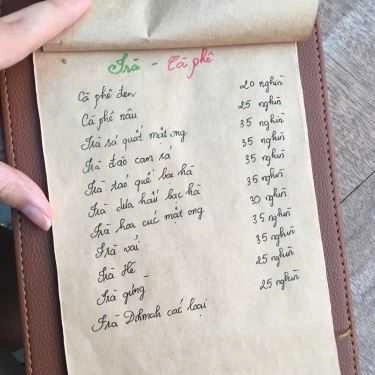 Trà - Cà phê
Cà phê đen 20 nghìn
Cà phê nâu 25 nghìn
Trà sả quất mật ong 35 nghìn
Trà đào cam sả 35 nghìn
Trà táo quế bạc hà 35 nghìn
Trà dưa hấu bạc hà 35 nghìn
Trà hoa cúc mật ong 30 nghìn
Trà vải 35 nghìn
Trà Hè 35 nghìn
Trà gừng 25 nghìn
Trà Dilmah các loại 25 nghìn